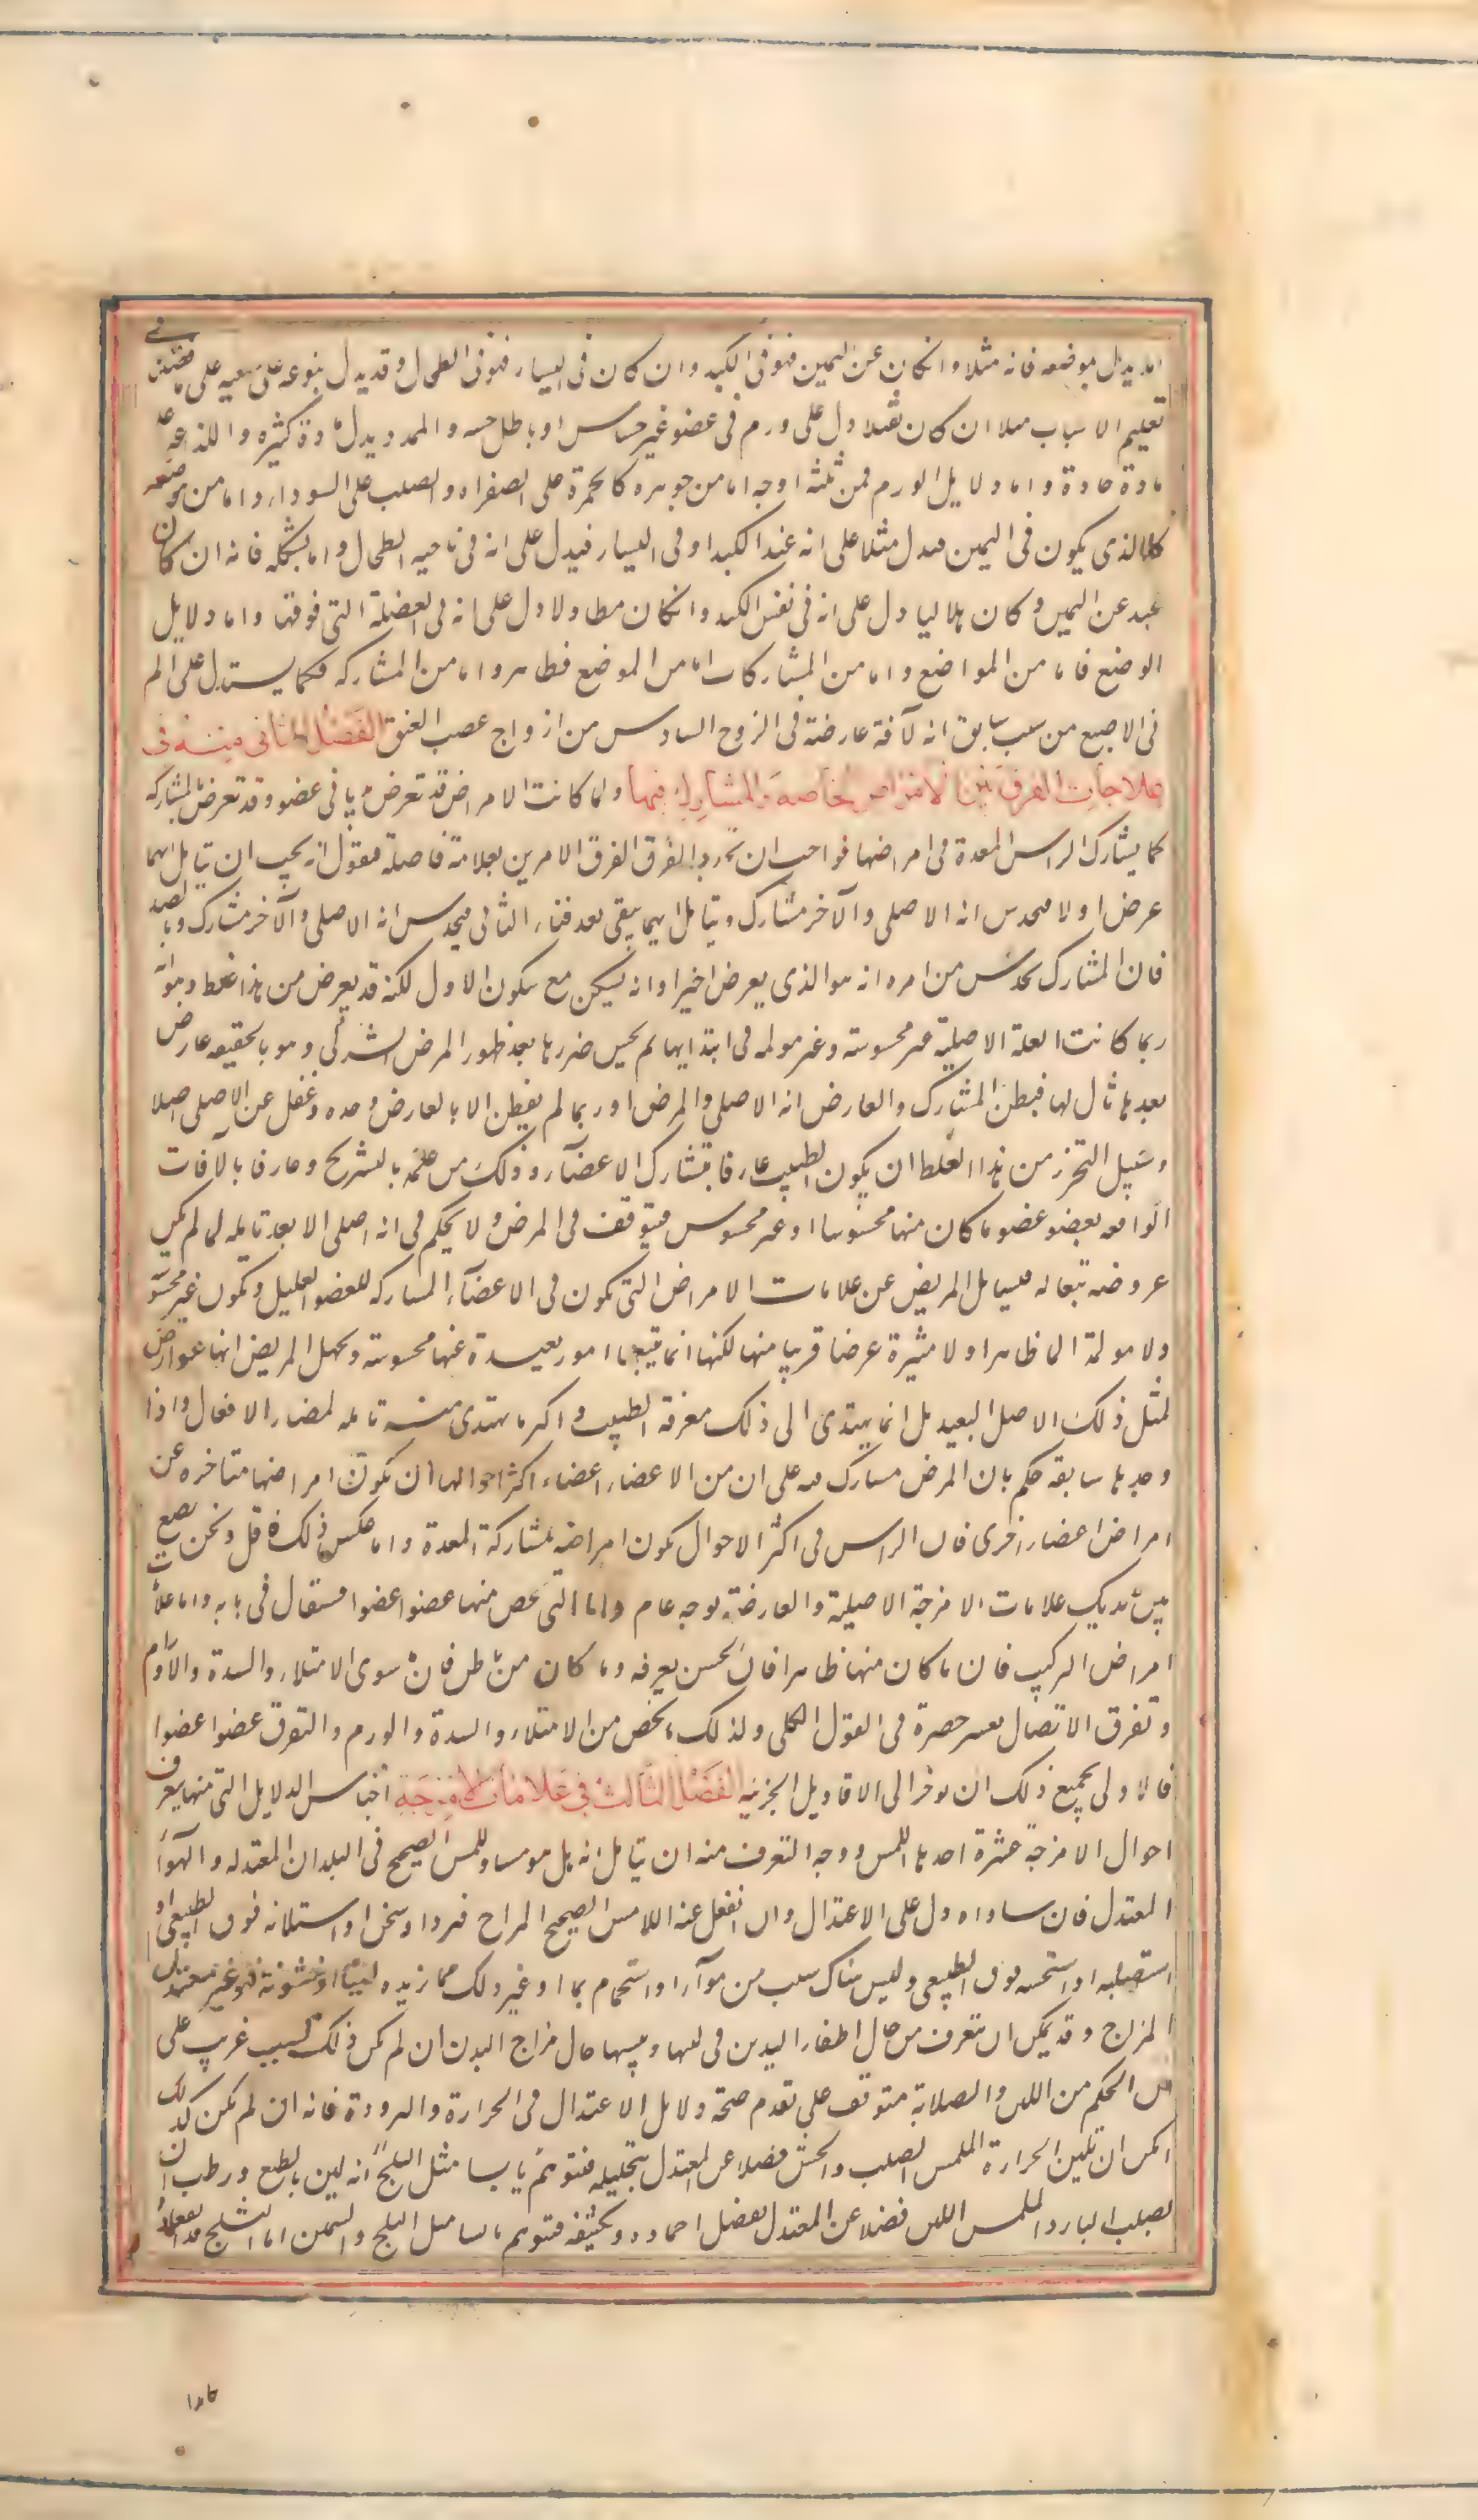 اما يدل بموضعه فانه مثلا وان كان عن اليمين فهو فى الكبد وان كان فى اليسار فهو فى الطحال وقد يدل بنوعه على سببه على ما فصلته فى
تعليم الاسباب مثلا ان كان ثقيلا دل على ورم فى عضو غير حساس او باطل حسه والممدد يدل مادة كثيره واللذاعه على
مادة حادة واما دلايل الورم فمن ثلثه اوجه اما من جوهره كالحمرة على الصفراء والصلب على السوداء واما من موضعه
كالذى يكون فى اليمين فيدل مثلا على انه عند الكبد او فى اليسار فيدل على انه فى ناحيه الطحال واما بشكله فانه ان كان
عند عن اليمين وكان هلاليا دل على انه فى نفس الكبد وان كان مطاولا دل على انه فى العضلة التى فوقها واما دلايل
الوضع فاما من المواضع واما من المشاركات اما من الموضع فظاهر واما من المشاركه فكما يستدل على الم
فى الاصبع من سبب سابق انه لآفة عارضة فى الزوج السادس من ازواج عصب العنق الفصل الثانى منه فى
علامات الفرق بين الامراض الخاصة والمشارك فيها ولما كانت الامراض قد تعرض بديا فى عضو وقد تعرض بالمشاركه
كما يشارك الراس المعدة فى امراضها فواجب ان نحدد الفرق الفرق الامرين بعلامة فاصلة فنقول انه يجب ان يتامل ايهما
عرض اولا فيحدس انه الاصلى والآخر مشارك ويتامل ايهما يبقى بعد فناء الثانى فيحدس انه الاصلى والآخر مشارك وبالضد
فان المشارك يحدس من امره انه هو الذى يعرض اخيرا وانه يسكن مع سكون الاول لكنه قد يعرض من هذا غلط وهو انه
ربما كانت العلة الاصلية غير محسوسة وغير مولمه فى ابتدايها ثم يحس ضررها بعد ظهور المرض الشركى وهو بالحقيقه عارض
بعدها تال لها فيظن المشارك والعارض انه الاصلى والمرض او ربما لم يفطن الا بالعارض وحده وغفل عن الاصلى اصلا
وسبيل التحرز من هذا الغلط ان يكون الطبيب عارفا بتشارك الاعضآء وذلك من علمه بالتشريح وعارفا بالآفات
الواقعه بعضو عضو ما كان منها محسوسا او غير محسوس فيتوقف فى المرض ولا يحكم فى انه اصلى الا بعد تامله لما لم يمكن
عروضه تبعا له فيسايل المريض عن علامات الامراض التى تكون فى الاعضآء المشاركه للعضو العليل وتكون غير محسوسه
ولا مولمة الما ظاهرا ولا مثيرة عرضا قريبا منها لكنها انما يتبعها امور بعيدة عنها محسوسة ويجهل المريض انها عوارض
لمثل ذلك الاصل البعيد بل انما يهتدى الى ذلك معرفة الطبيب واكثر ما يهتدى منه تامله لمضار الافعال واذا
وجدها سابقة حكم بان المرض مشارك فيه على ان من الاعضاء اعضاء اكثر احوالها ان تكون امراضها متاخره عن
امراض اعضاء اخرى فان الراس فى اكثر الاحوال تكون امراضه بمشاركة المعدة واما عكس ذلك فاقل ونحن نضع
بين يديك علامات الامزجة الاصلية والعارضة بوجه عام واما التى تخص منها عضوا عضوا فسيقال فى بابه واما علامات
امراض التركيب فان ما كان منها ظاهرا فان الحس يعرفه وما كان من باطن فان سوى الامتلاء والسدة والاورام
وتفرق الاتصال يعسر حصرة فى القول الكلى ولذلك ما يخص من الامتلاء والسدة والورم والتفرق عضوا عضوا
فالاولى بجميع ذلك ان يوخر الى الاقاويل الجزئيه الفصل الثالث فى علامات الامزجة اجناس الدلايل التى منها يعرف
احوال الامزجة عشرة احدها اللمس ووجه التعرف منه ان يتامل انه هل هو مساو للمس الصحيح فى البلدان المعتدله والهوآء
المعتدل فان ساواه دل على الاعتدال وان انفعل عنه اللامس الصحيح المزاج فبردا وسخن او استلانه فوق الطبيعى او
استصلبه او استخشنه فوق الطبيعى وليس هناك سبب من هوآء او استحمام بما او غير ذلك مما يزيده لينا او خشونة فهو غير معتدل
المزاج وقد يمكن ان يتعرف من حال اظفار اليدين فى لينها ويبسها حال مزاج البدن ان لم يكن ذلك لسبب غريب على
ان الحكم من اللين والصلابة متوقف على تقدم صحة دلايل الاعتدال فى الحرارة والبرودة فانه ان لم يكن كذلك
امكن ان تلين الحرارة الملمس الصلب والخشن فضلا عن المعتدل بتحليله فتوهم يابسا مثل الثلج انه لين بالطبع ورطب ان
يصلب البارد الملمس اللين فضلا عن المعتدل بفضل اجماده وتكثيفه فتوهم يابسا مثل الثلج والسمن اما الثلج فلانعقاده